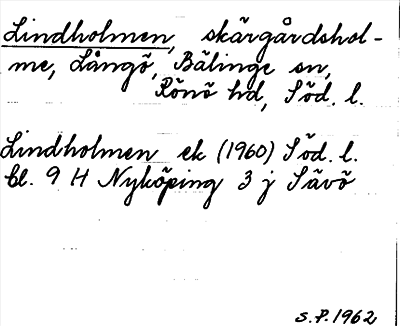 Lindholmen, skärgårdshol-
me, Långö, Bälinge sn,
Rönö hd, Söd. l.
Lindholmen ek (1960) Söd. l.
bl. 9 H Nyköping 3 j Sävö
S.P. 1962